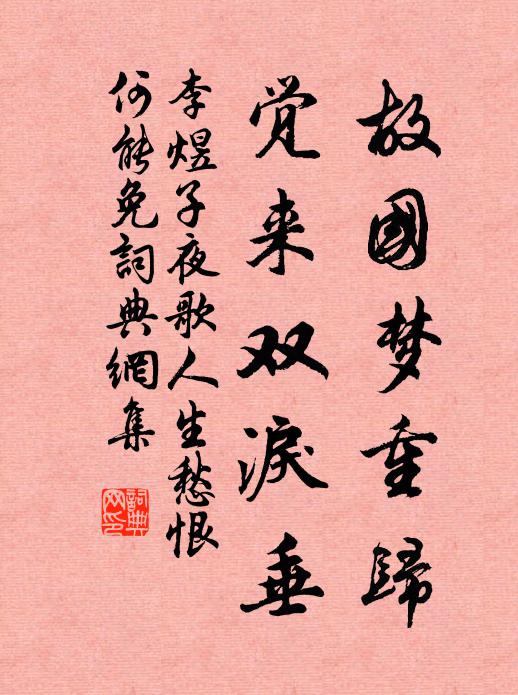 故國梦重歸
覚来双淚垂
李煜子夜歌人生愁恨
何能免詞典網集
詞典网印